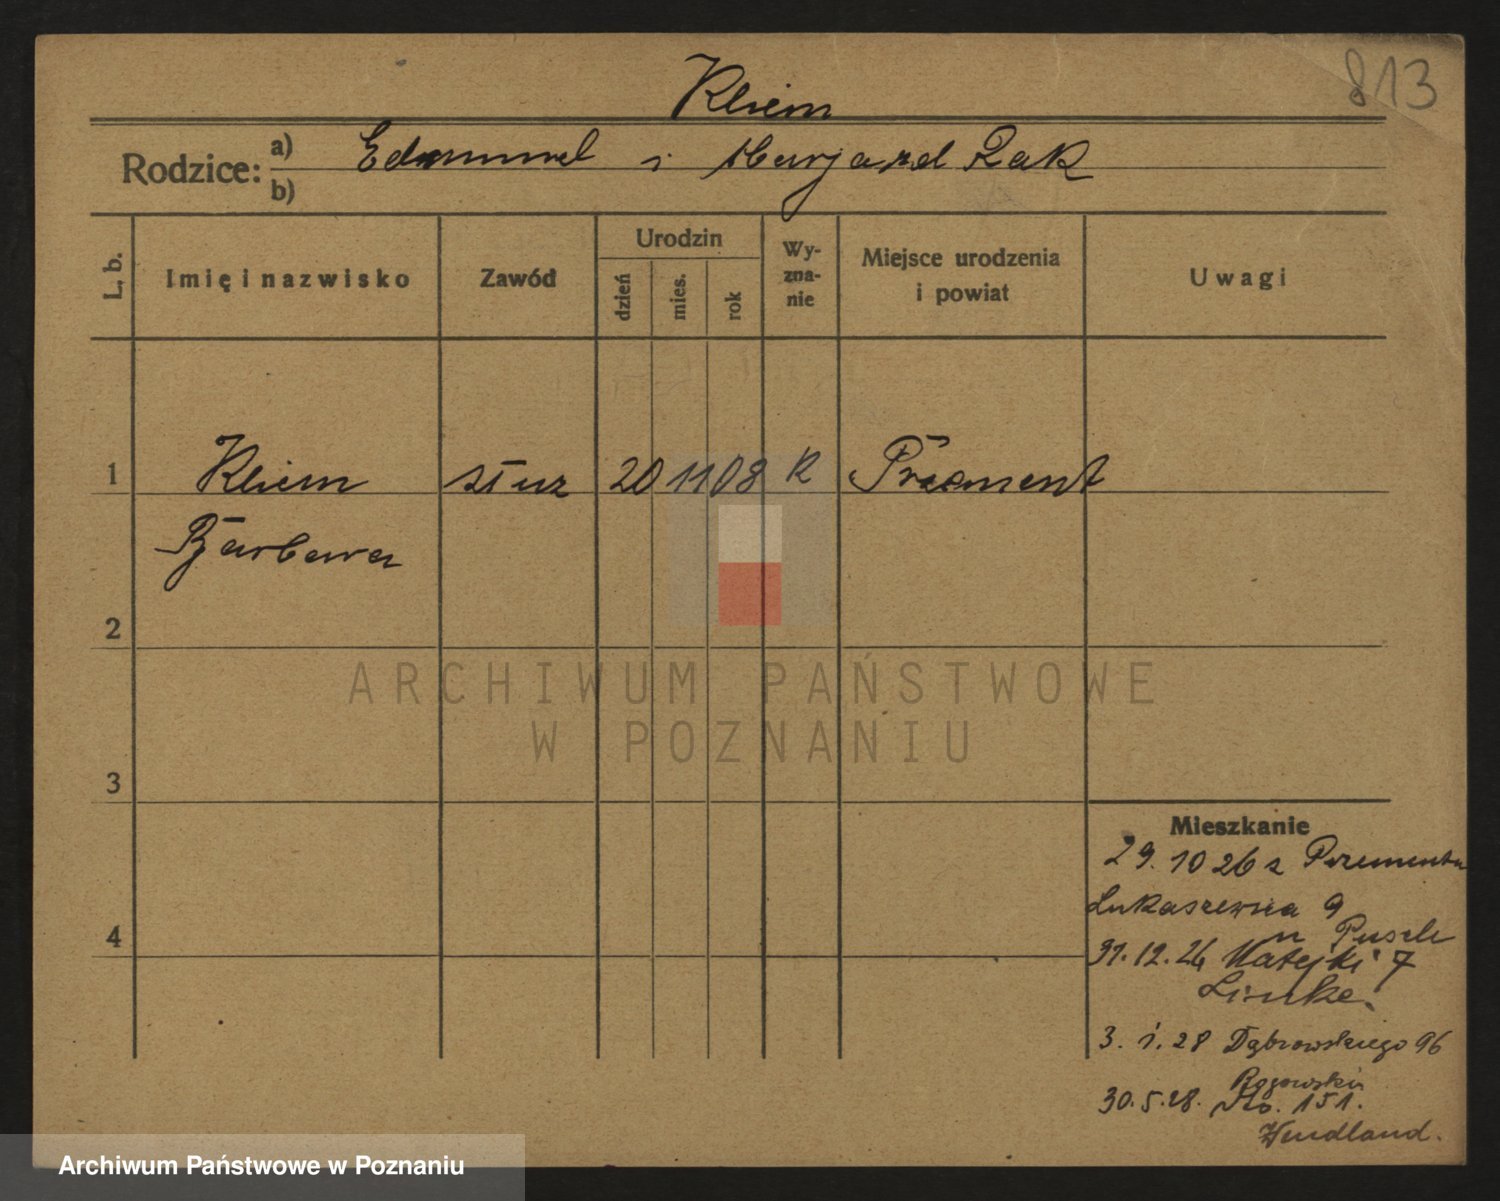 Kliem
813
Rodzice: a) Edmund i Rak
b)
L. b. Imię i nazwisko Zawód Urodzin dzień mies. rok Wy-zna-nie Miejsce urodzenia i powiat Uwagi
1 Kliem służ 20 11 08 R Přement
Barbara
2
ARCHIWUM PAŃSTWOWE
W POZNANIU
3
Mieszkanie
29. 10 26 z Przementu
Łukaszewicza 9
4
u Puszle
31.12.26 Matejki 7
Linke.
3. 1. 28 Dąbrowskiego 96
Rogowski
30.5.28. 151.
Wendland.
Archiwum Państwowe w Poznaniu